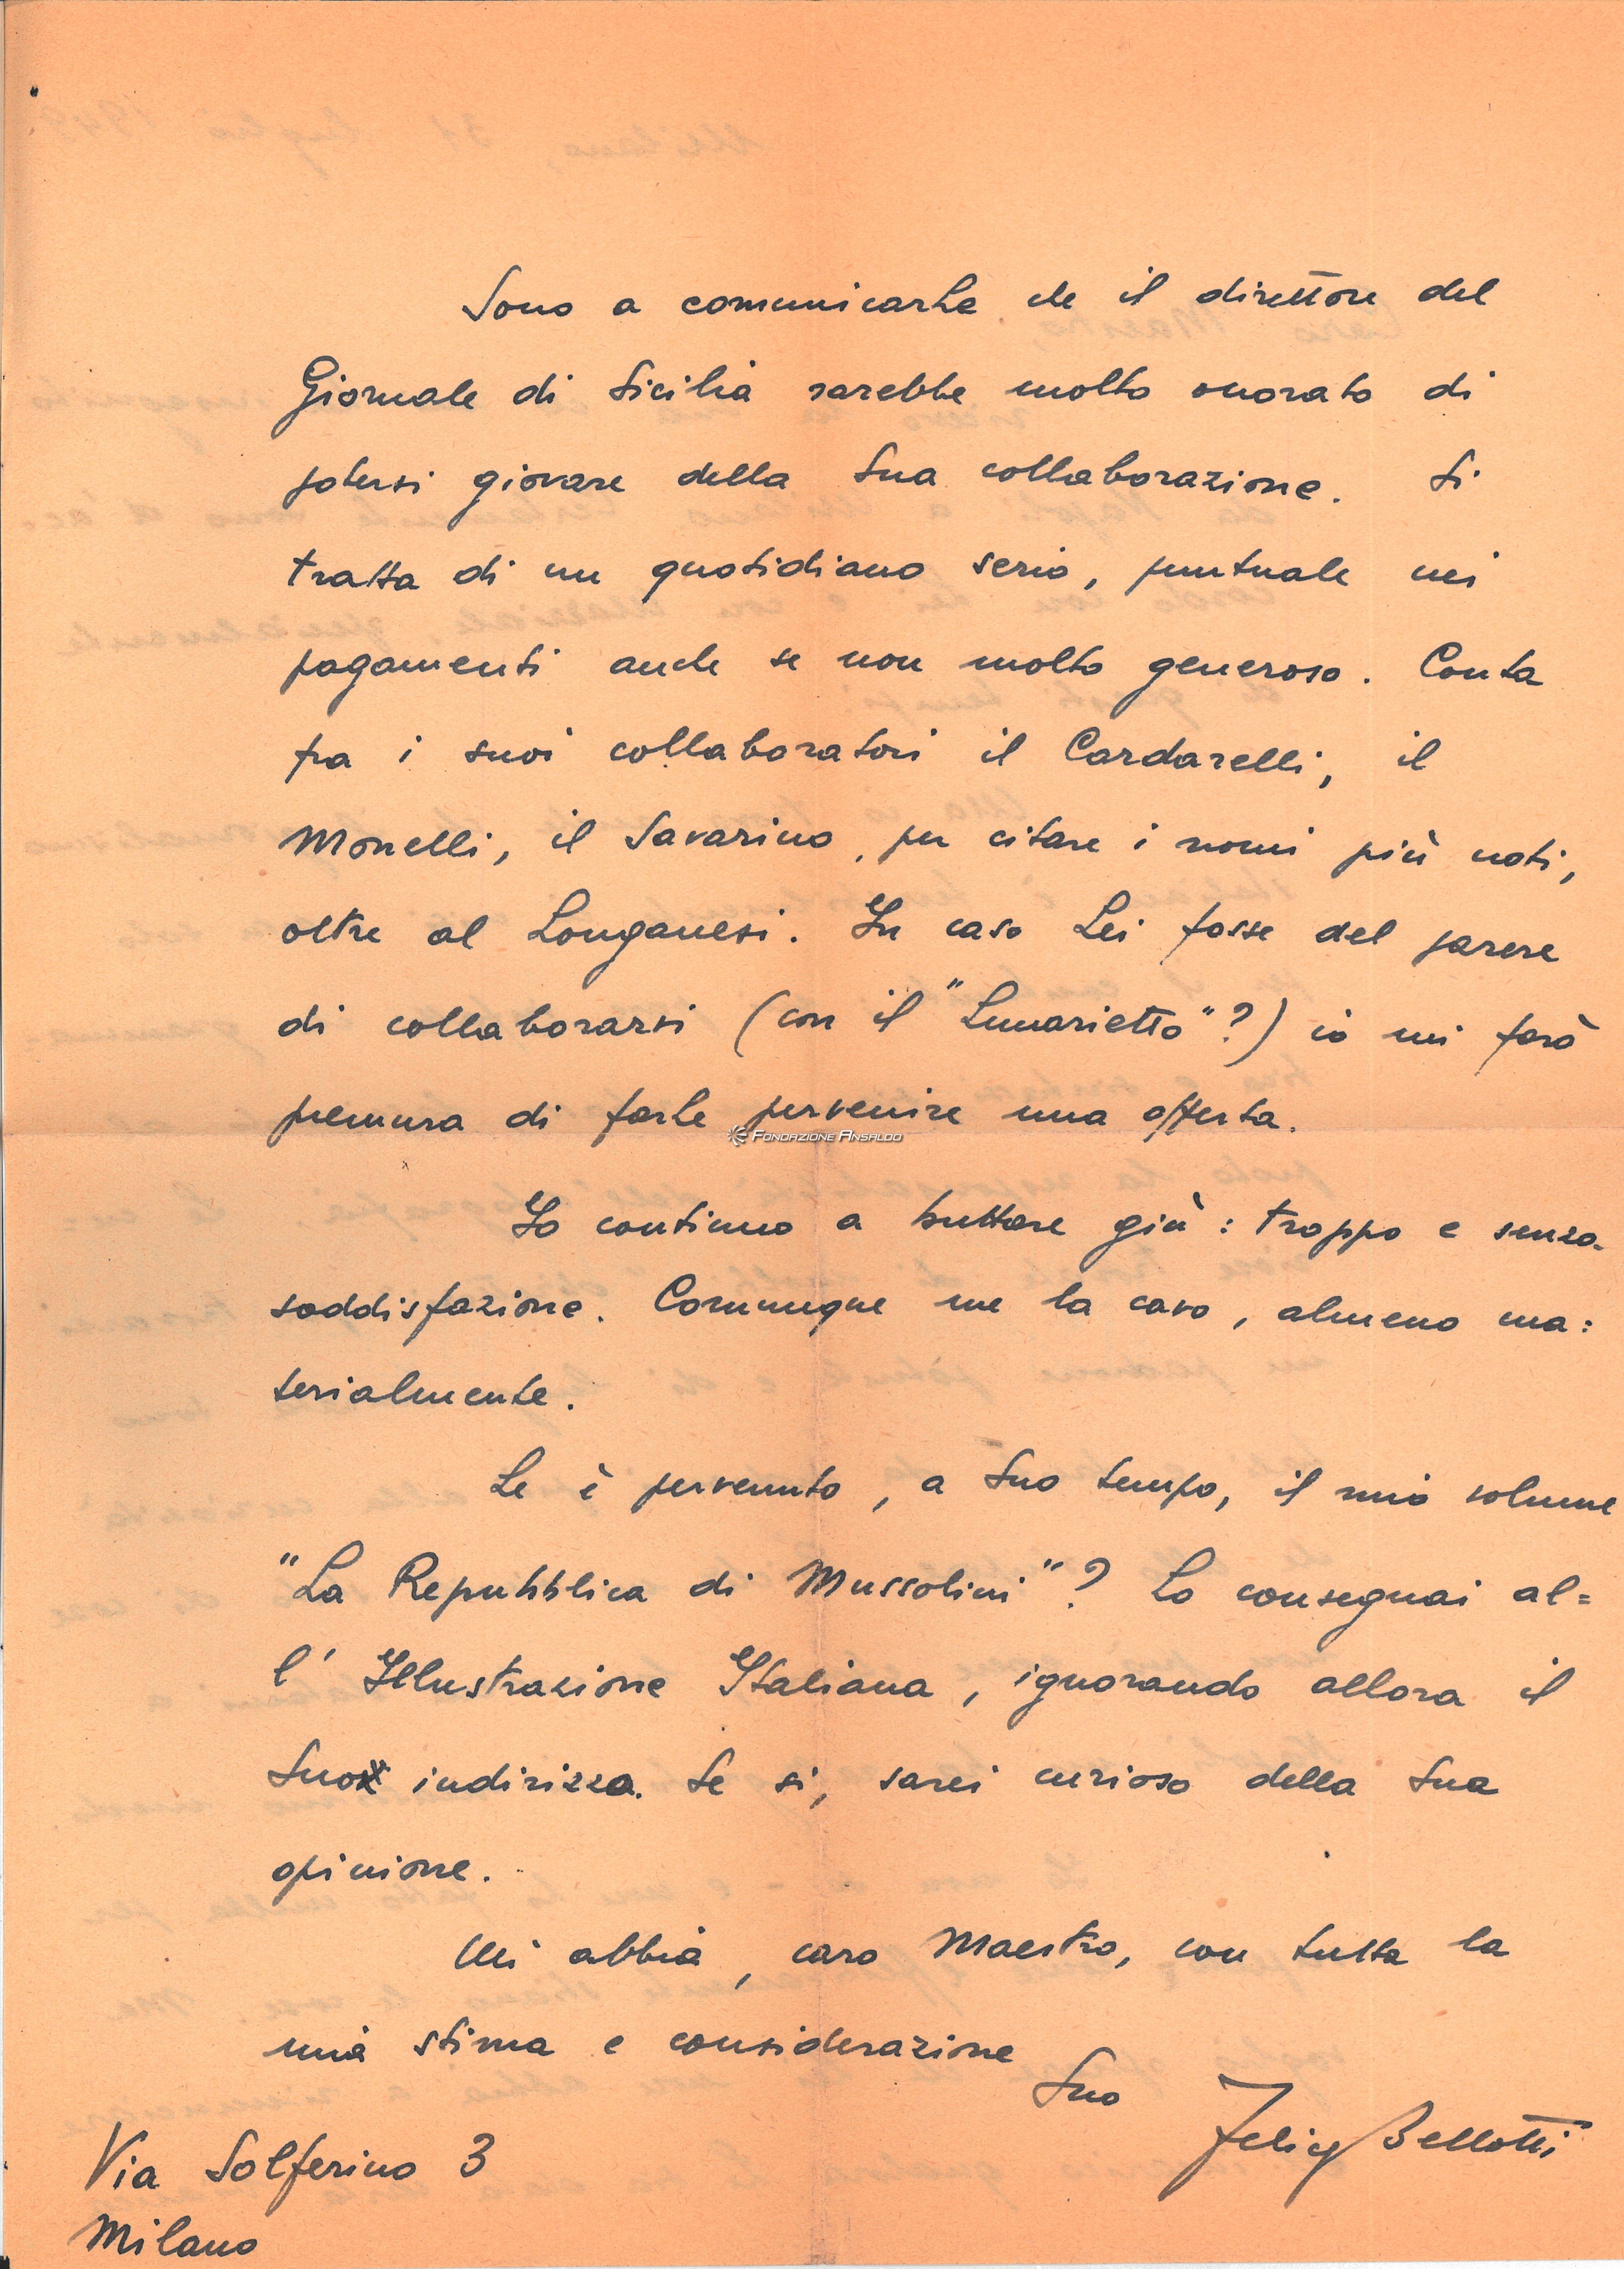 Sono a comunicarLe che il direttore del
Giornale di Sicilia sarebbe molto onorato di
potersi giovare della Sua collaborazione. Si
tratta di un quotidiano serio, puntuale nei
pagamenti anche se non molto generoso. Conta
fra i suoi collaboratori il Cardarelli, il
Monelli, il Savarino, per citare i nomi più noti,
oltre al Longanesi. In caso Lei fosse del parere
di collaborarsi (con il "Lunarietto"?) io mi farò
premura di farLe pervenire una offerta.
FONDAZIONE ANSALDO
Io continuo a buttare giù: troppo e senza
soddisfazione. Comunque me la cavo, almeno ma:
terialmente.
Le è pervenuto, a Suo tempo, il mio volume
"La Repubblica di Mussolini"? Lo consegnai al=
l'Illustrazione Italiana, ignorando allora il
Suo indirizzo. Se si, sarei curioso della Sua
opinione.
Mi abbia, caro Maestro, con tutta la
mia stima e considerazione
Suo
Felice Bellotti
Via Solferino 3
Milano